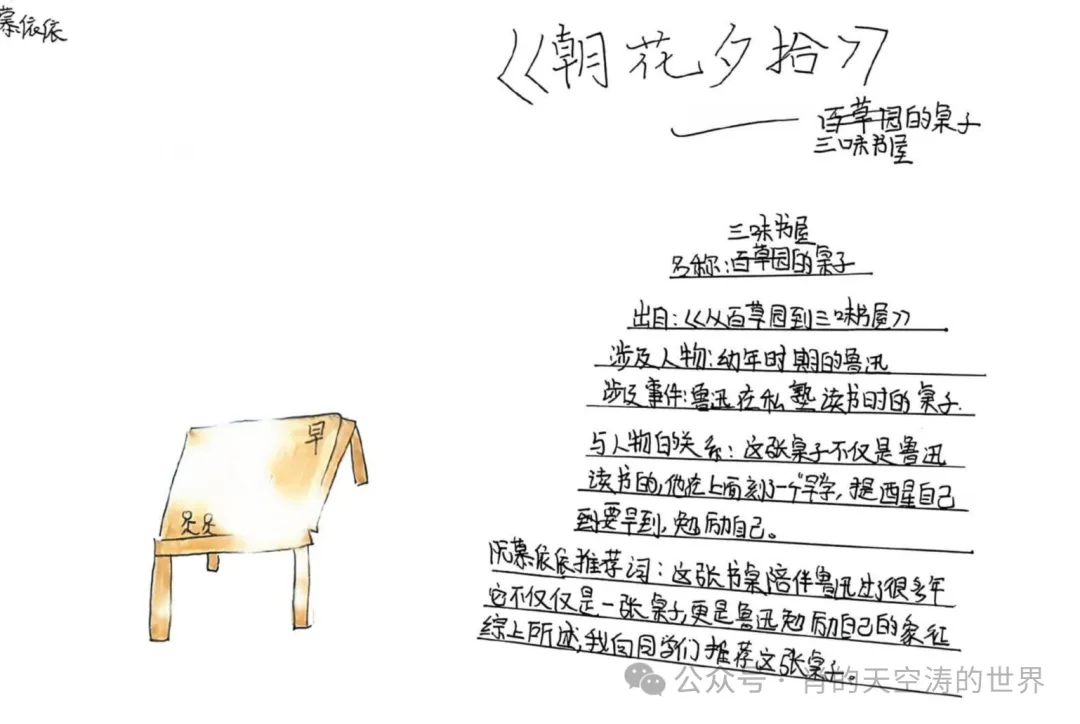 慕依依
《《朝花夕拾》》
——百草园的桌子
三味书屋
三味书屋
名称：百草园的桌子
出自：《《从百草园到三味书屋》》
涉及人物：幼年时期的鲁迅
涉及事件：鲁迅在私塾读书时的桌子.
与人物的关系：这张桌子不仅是鲁迅
读书的，他在上面刻了一个"早"字，提醒自己
到要早到，勉励自己。
阮慕依依推荐词：这张书桌陪伴鲁迅过了很多年
它不仅仅是一张桌子，更是鲁迅勉励自己的象征
综上所述，我向同学们推荐这张桌子。
早
公众号·肖的天空涛的世界